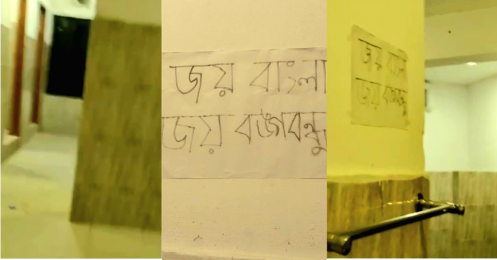 জয় বাংলা
জয় বঙ্গবন্ধু
জয় বাংলা
জয় বঙ্গবন্ধু